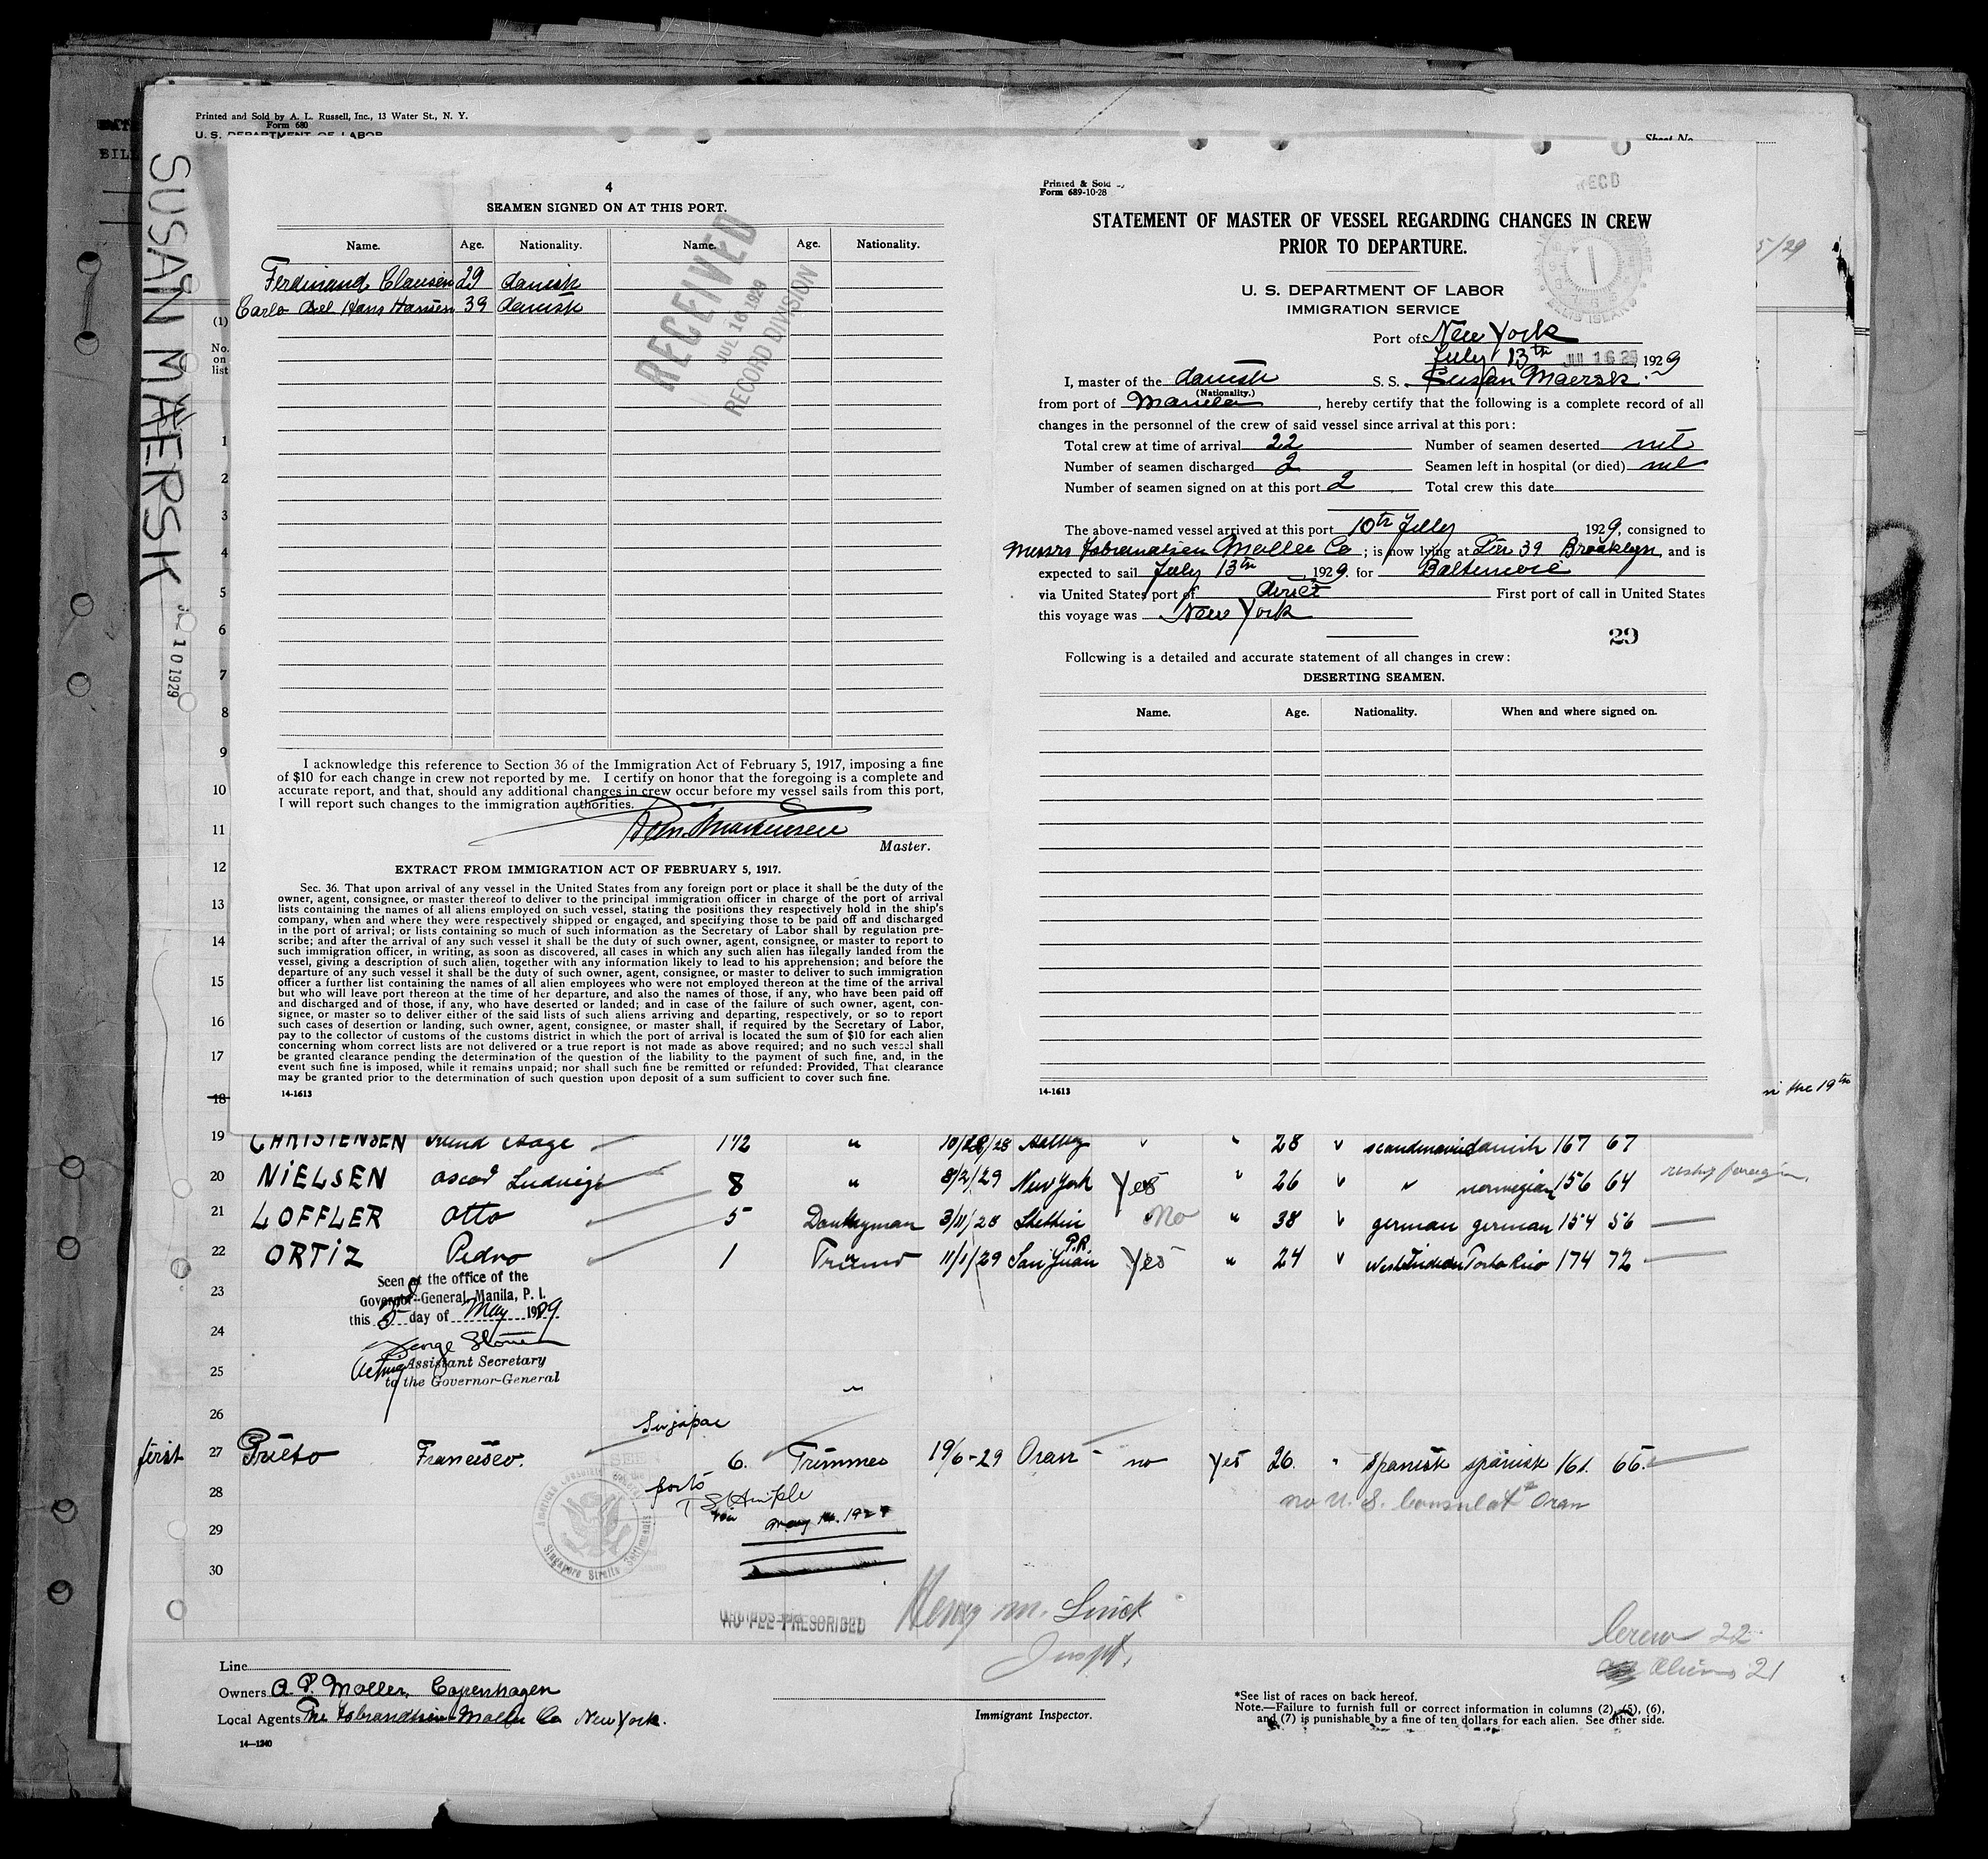 Printed and Sold by A. L. Russell, Inc., 13 Water St., N. Y.
Form 680
U. S. DEPARTMENT OF LABOR
Sheet No.
BILL
SUSAN MÆRSK
JUL 10 1929
5/29
4
SEAMEN SIGNED ON AT THIS PORT.
Name. Age. Nationality. Name. Age. Nationality.
Ferdinand Clausen 29 danish
Carlo Hans Hansen 39 danish
RECEIVED
JUL 16 1929
RECORD DIVISION
I acknowledge this reference to Section 36 of the Immigration Act of February 5, 1917, imposing a fine
of $10 for each change in crew not reported by me. I certify on honor that the foregoing is a complete and
accurate report, and that, should any additional changes in crew occur before my vessel sails from this port,
I will report such changes to the immigration authorities.
Master.
EXTRACT FROM IMMIGRATION ACT OF FEBRUARY 5, 1917.
Sec. 36. That upon arrival of any vessel in the United States from any foreign port or place it shall be the duty of the
owner, agent, consignee, or master thereof to deliver to the principal immigration officer in charge of the port of arrival
lists containing the names of all aliens employed on such vessel, stating the positions they respectively hold in the ship's
company, when and where they were respectively shipped or engaged, and specifying those to be paid off and discharged
in the port of arrival; or lists containing so much of such information as the Secretary of Labor shall by regulation pre-
scribe; and after the arrival of any such vessel it shall be the duty of such owner, agent, consignee, or master to report to
such immigration officer, in writing, as soon as discovered, all cases in which any such alien has illegally landed from the
vessel, giving a description of such alien, together with any information likely to lead to his apprehension; and before the
departure of any such vessel it shall be the duty of such owner, agent, consignee, or master to deliver to such immigration
officer a further list containing the names of all alien employees who were not employed thereon at the time of the arrival
but who will leave port thereon at the time of her departure, and also the names of those, if any, who have been paid off
and discharged and of those, if any, who have deserted or landed; and in case of the failure of such owner, agent, con-
signee, or master so to deliver either of the said lists of such aliens arriving and departing, respectively, or so to report
such cases of desertion or landing, such owner, agent, consignee, or master shall, if required by the Secretary of Labor,
pay to the collector of customs of the customs district in which the port of arrival is located the sum of $10 for each alien
concerning whom correct lists are not delivered or a true report is not made as above required; and no such vessel shall
be granted clearance pending the determination of the question of the liability to the payment of such fine, and, in the
event such fine is imposed, while it remains unpaid; nor shall such fine be remitted or refunded: Provided, That clearance
may be granted prior to the determination of such question upon deposit of a sum sufficient to cover such fine.
14-1613
Printed & Sold by
Form 689-10-28
RECD
STATEMENT OF MASTER OF VESSEL REGARDING CHANGES IN CREW
PRIOR TO DEPARTURE.
U. S. DEPARTMENT OF LABOR
IMMIGRATION SERVICE
ELLIS ISLAND
Port of New York
July 13th JUL 16 29, 1929
I, master of the danish S. S. Susan Maersk
(Nationality.)
from port of Manila, hereby certify that the following is a complete record of all
changes in the personnel of the crew of said vessel since arrival at this port:
Total crew at time of arrival 22 Number of seamen deserted nil
Number of seamen discharged 2 Seamen left in hospital (or died) nil
Number of seamen signed on at this port 2 Total crew this date
The above-named vessel arrived at this port 10th July, 1929, consigned to
Messrs Isbrandtsen Moller Co; is now lying at Pier 39 Brooklyn, and is
expected to sail July 13th, 1929. for Baltimore
via United States port of direct First port of call in United States
this voyage was New York
29
Following is a detailed and accurate statement of all changes in crew:
DESERTING SEAMEN.
Name. Age. Nationality. When and where signed on.
14-1613
(1)
No. on list
1
2
3
4
5
6
7
8
9
10
11
12
13
14
15
16
17
18 the 19th
19 CHRISTENSEN Aage 1 1/2 " 10/28/28 " 28 scandinavian danish 167 67
20 NIELSEN Oscar Ludvig 8 " 8/2/29 New York Yes " 26 " norwegian 156 64 reship foreign.
21 LOFFLER Otto 5 Donkeyman 3/11/28 Stettin No " 38 german german 154 56
22 ORTIZ Pedro 1 Trimmer 11/1/29 San Juan P.R. Yes " 24 West Indian Porto Rico 174 72
Seen at the office of the
Governor-General, Manila, P. I.
this 3d day of May 1929
23
24
George
Acting Assistant Secretary
to the Governor-General
25
26
Singapore
first 27 Prieto Francisco. 6. Trimmer 19/6-29 Oran no yes 26. " spanish spanish 161. 66.
no U. S. Consulat Oran
SEEN
ports
28
29
May 14. 1929
30
American Consulate General
Singapore Straits Settlements
NO FEE PRESCRIBED
Henry M.
Inspt.
Crew 22
Aliens 21
Line
Owners A. P. Moller, Copenhagen
Local Agents The Isbrandtsen-Moller Co New York.
14—1240
Immigrant Inspector.
*See list of races on back hereof.
Note.—Failure to furnish full or correct information in columns (2), (5), (6),
and (7) is punishable by a fine of ten dollars for each alien. See other side.